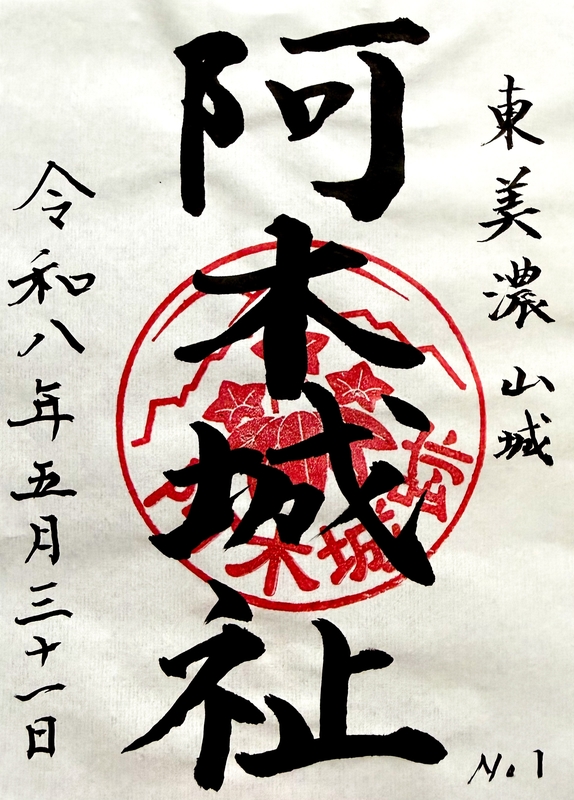 東美濃 山城
阿木城祉
木城
令和八年五月三十一日
No.1